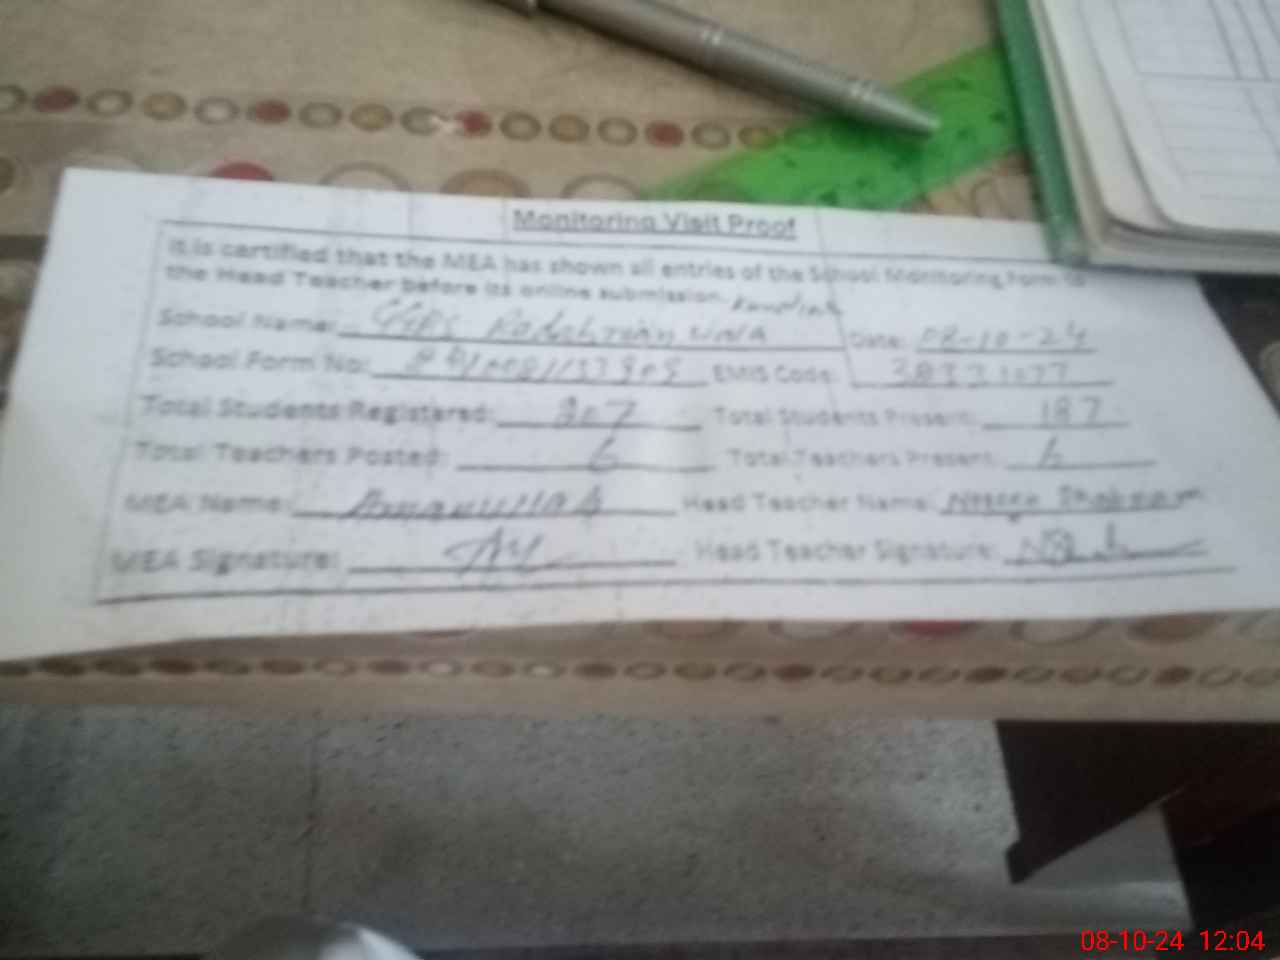 Monitoring Visit Proof
It is certified that the MEA has shown all entries of the School Monitoring Form to
the Head Teacher before its online submission.
School Name: Date: 08-10-24
School Form No: EMIS Code:
Total Students Registered: 207 Total Students Present: 187
Total Teachers Posted: 6 Total Teachers Present: 6
MEA Name: Amanullah Head Teacher Name:
MEA Signature: Head Teacher Signature:
08-10-24 12:04